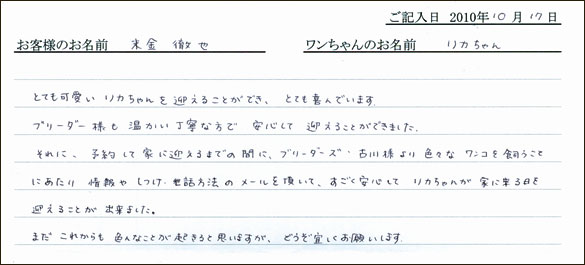 ご記入日 2010年10月17日
お客様のお名前 米金 徹也 ワンちゃんのお名前 リカちゃん
とても可愛い リカちゃんを迎えることができ、とても喜んでいます。
ブリーダー様も 温かい丁寧な方で 安心して 迎えることができました。
それに、予約して家に迎えるまでの間に、ブリーダーズ・古川様より色々な ワンコを飼うこと
にあたり 情報や しつけ・世話方法 のメールを頂いて、すごく安心して リカちゃんが 家に来る日を
迎えることが 出来ました。
まだ これからも 色んなことが 起きると思いますが、どうぞ宜しくお願いします。